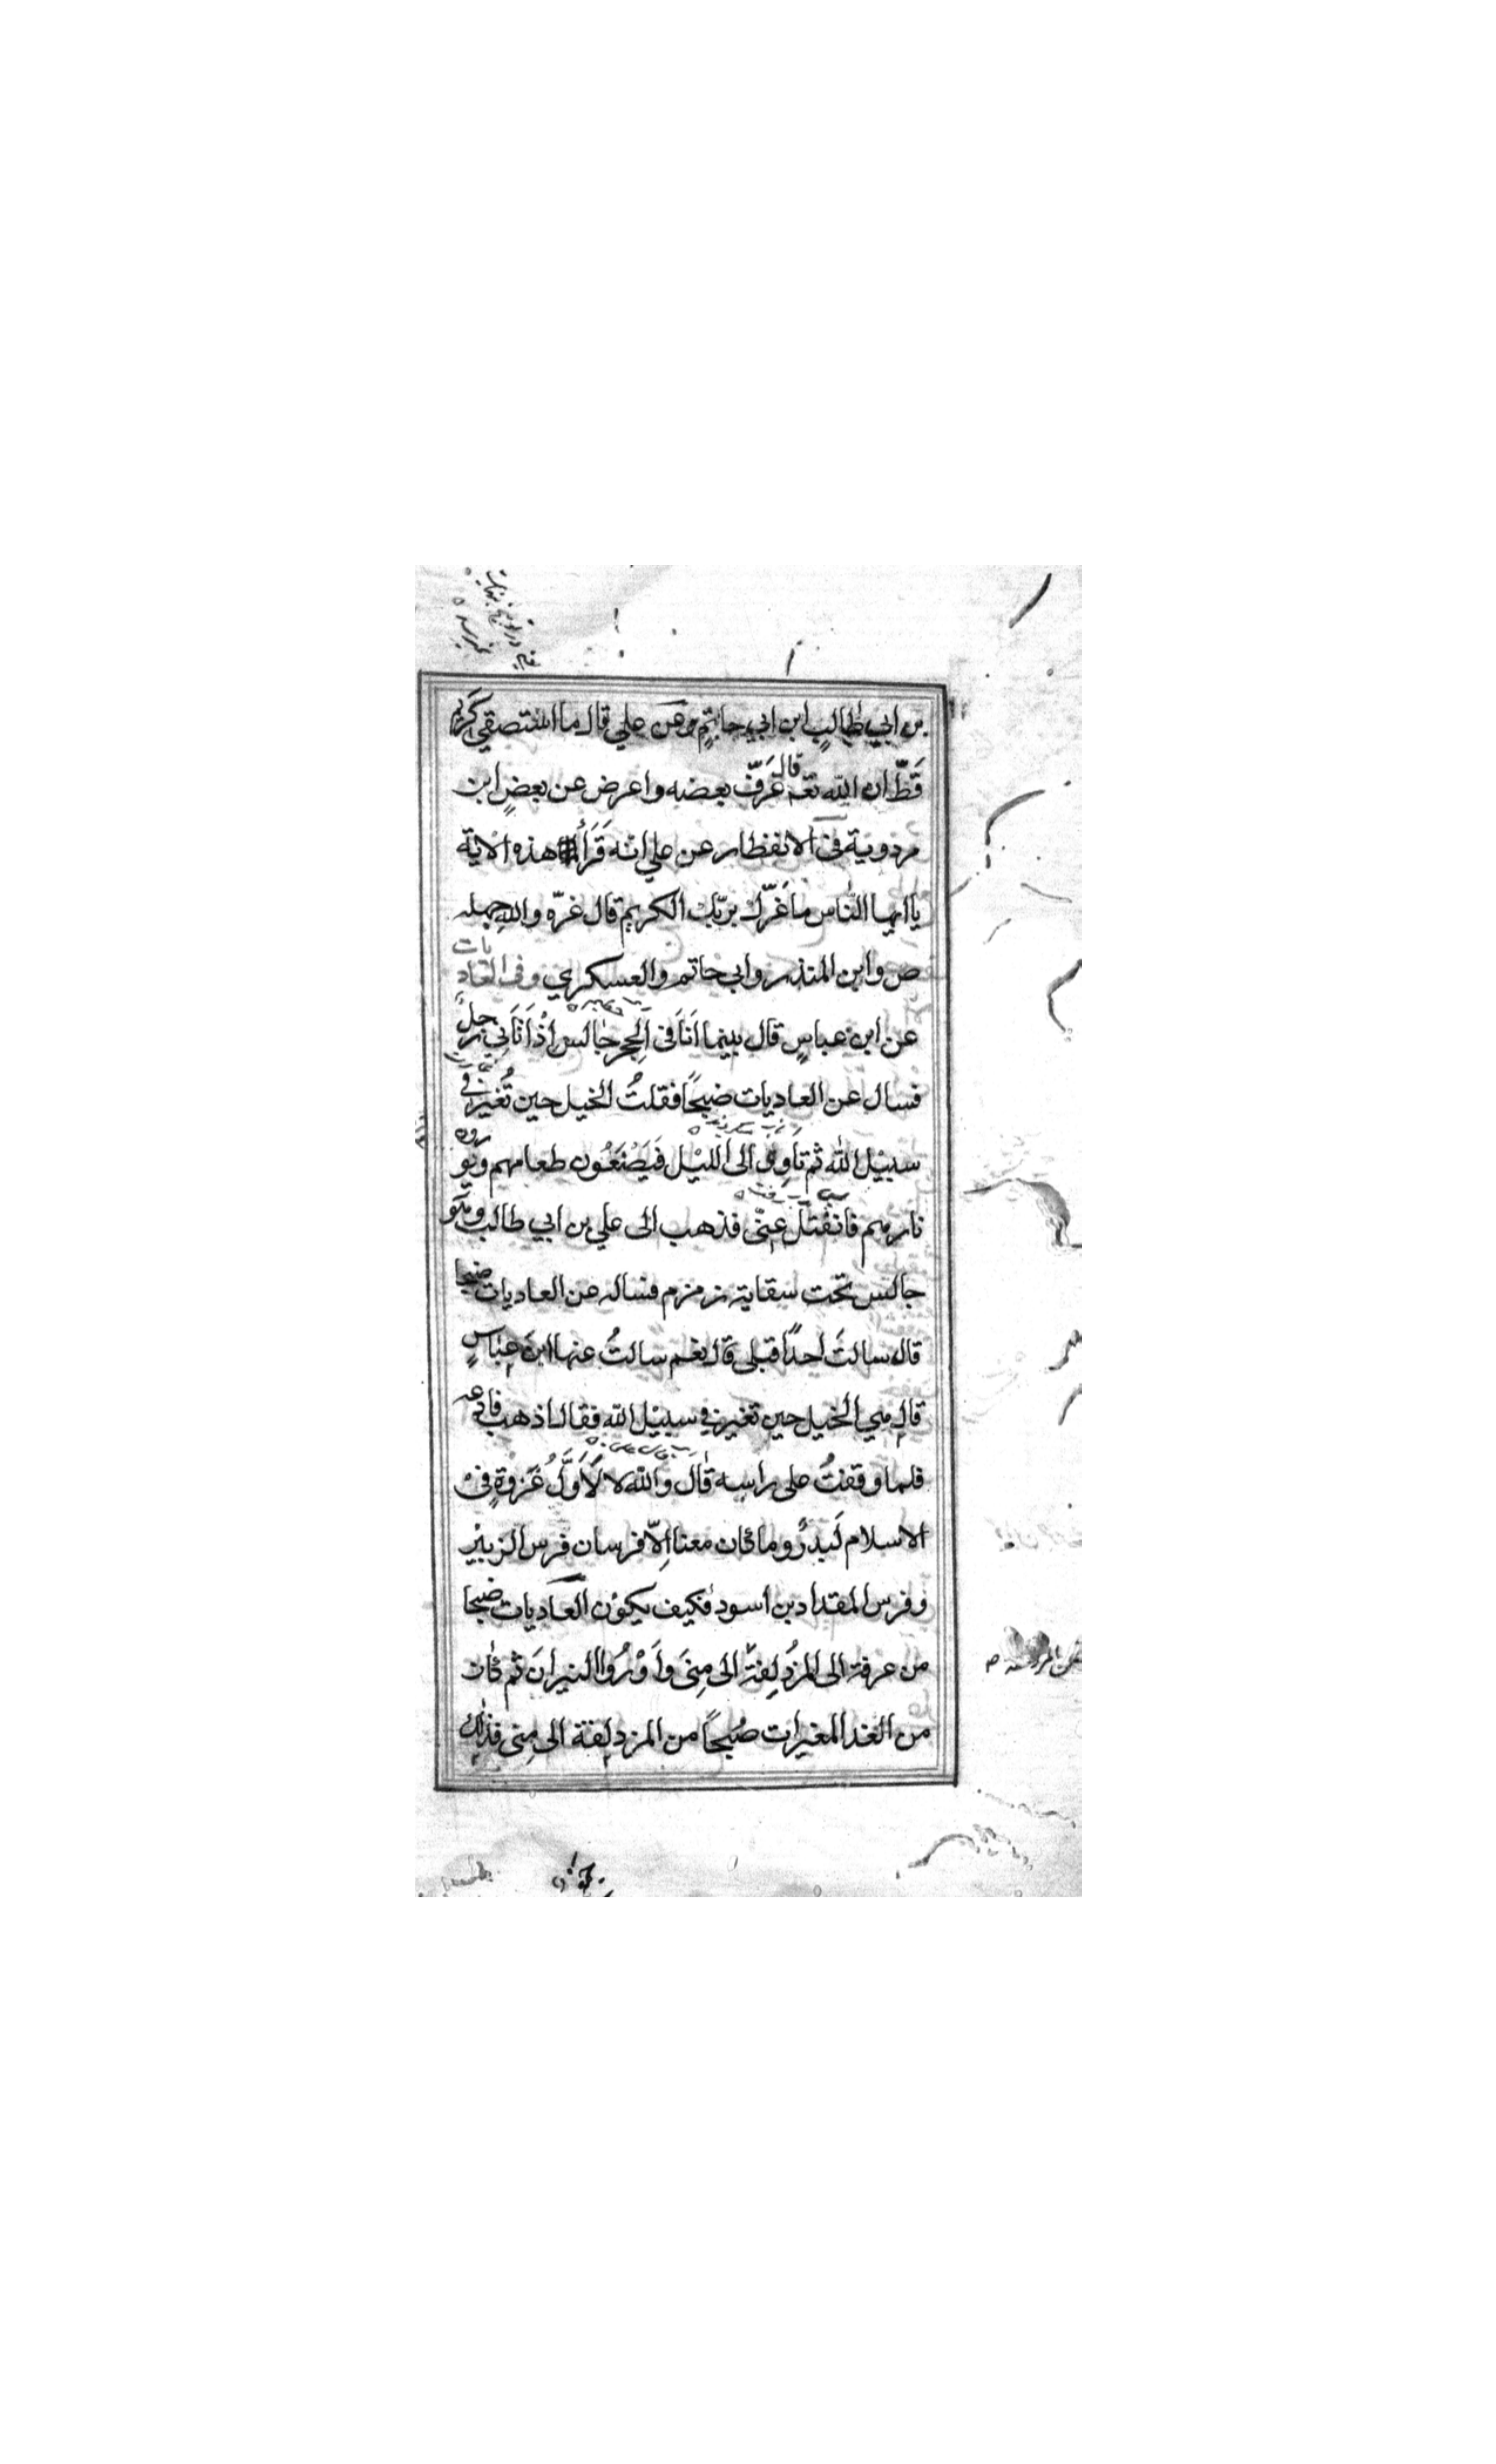 بن ابي طالبٍ ابن ابي حاتمٍ وعن علي قال ما استقصي كريم
قَطّ ان الله تعـ قال عَرَفّ بعضه واعرض عن بعضٍ ابن
مردوية فى الانفطار عن علي انه قَرَأ هذه الاية
يا ايها النّاس ما غَرّكَ بربّك الكريم قال غرّه واللهِ جهله
ص وابن المنذر وابى حاتم والعسكري وفى العاديات
عن ابن عباسٍ قال بينما اَنَا فى الحِجر جالس اِذْ اَتَانِي رجلٌ
فسال عن العاديات ضبحًا فقلتُ الخيل حين تُغير فى
سبيل الله ثم تَاوِى الى الليْل فَيَصْنَعُون طعامهم ويورون
نارهم فانفتل عنّى فذهب الى علي بن ابي طالب وهو
جالس تحت سقاية زمزم فساله عن العاديات ضبحا
قال سالتَ احدًا قبلى قال نعم سالتُ عنها ابن عباسٍ
قال هي الخيل حين تغير في سبيل الله فقال اذهب فادعه
فلما وقفتُ على راسه قال والله لا لَاَوَّلُ غَزوةٍ فىْ
الاسلام لَبدرٌ وما كان معنا اِلاّ فرسان فرس الزبيْر
وفرس المقداد بن اسود فكيف يكون العاديات ضبحا
من عرفة الى المزْدَلِفة الى مِنىَ واَوْرُوا النيرانَ ثم كان
من الغد المغيرات صُبحًا من المزدلفة الى مِنى فذلك